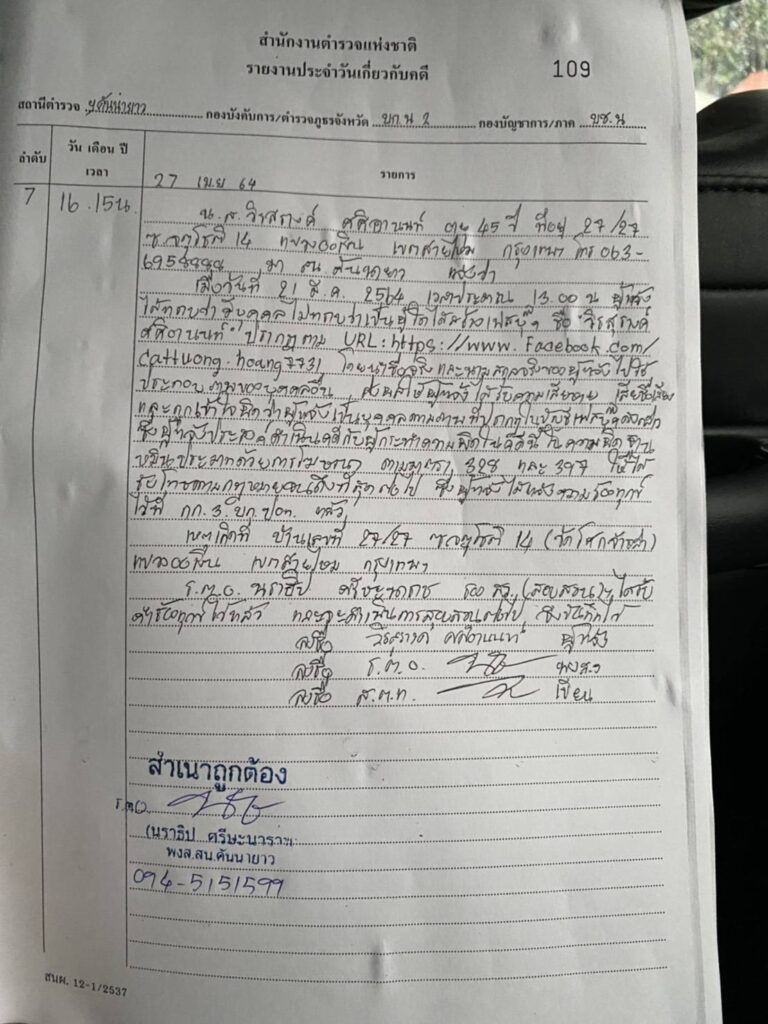 สำนักงานตำรวจแห่งชาติ
รายงานประจำวันเกี่ยวกับคดี
109
สถานีตำรวจ คันนายาว กองบังคับการ/ตำรวจภูธรจังหวัด บก.น 2 กองบัญชาการ/ภาค บช.น
ลำดับ วัน เดือน ปี เวลา รายการ
27 เม.ย 64
7 16.15น. น.ส. วิรสุรางค์ ศศิอานนท์ อายุ 45 ปี ที่อยู่ 27/27
14 แขวงออเงิน เขตสายไหม กรุงเทพฯ โทร 063-
มา สน.คันนายาว แจ้งว่า
เมื่อวันที่ 21 2564 เวลาประมาณ 13.00 น ผู้แจ้ง
ได้ทราบว่า มีบุคคลไม่ทราบว่าเป็นผู้ใดได้สร้างเฟสบุ๊ค ชื่อ "วิรสุรางค์
ศศิอานนท์" ปรากฏตาม URL: https://www.facebook.com/
cattuong.hoang7731 โดยนำชื่อจริงและนามสกุลจริงของผู้แจ้งไปใช้
ประกอบภาพของบุคคลอื่น ส่งผลให้ผู้แจ้งได้รับความเสียหาย เสียชื่อเสียง
และถูกเข้าใจผิดว่าผู้แจ้งเป็นบุคคลตามภาพที่ปรากฏในบัญชีเฟสบุ๊คดังกล่าว
ซึ่งผู้แจ้งประสงค์ดำเนินคดีกับผู้กระทำความผิดในคดีนี้ ในความผิดฐาน
หมิ่นประมาทด้วยการโฆษณา ตามมาตรา 328 และ 397 ให้ได้
รับโทษตามกฎหมายจนถึงที่สุดต่อไป ซึ่งผู้แจ้งได้แจ้งความร้องทุกข์
ไว้ที่ กก.3.บก.ปอท. แล้ว
เหตุเกิดที่ บ้านเลขที่ 27/27 14
แขวงออเงิน เขตสายไหม กรุงเทพฯ
ร.ต.อ. นราธิป รอง สว.(สอบสวน)ฯ ได้รับ
คำร้องทุกข์ไว้แล้ว และจะดำเนินการสอบสวนต่อไป จึงบันทึกไว้
ลงชื่อ วิรสุรางค์ ศศิอานนท์ ผู้แจ้ง
ลงชื่อ ร.ต.อ. พงส.ฯ
ลงชื่อ ส.ต.ท. เขียน
สำเนาถูกต้อง
ร.ต.อ.
(นราธิป ศรีษะนาราฯ
พงส.สน.คันนายาว
094-5151599
สนผ. 12-1/2537